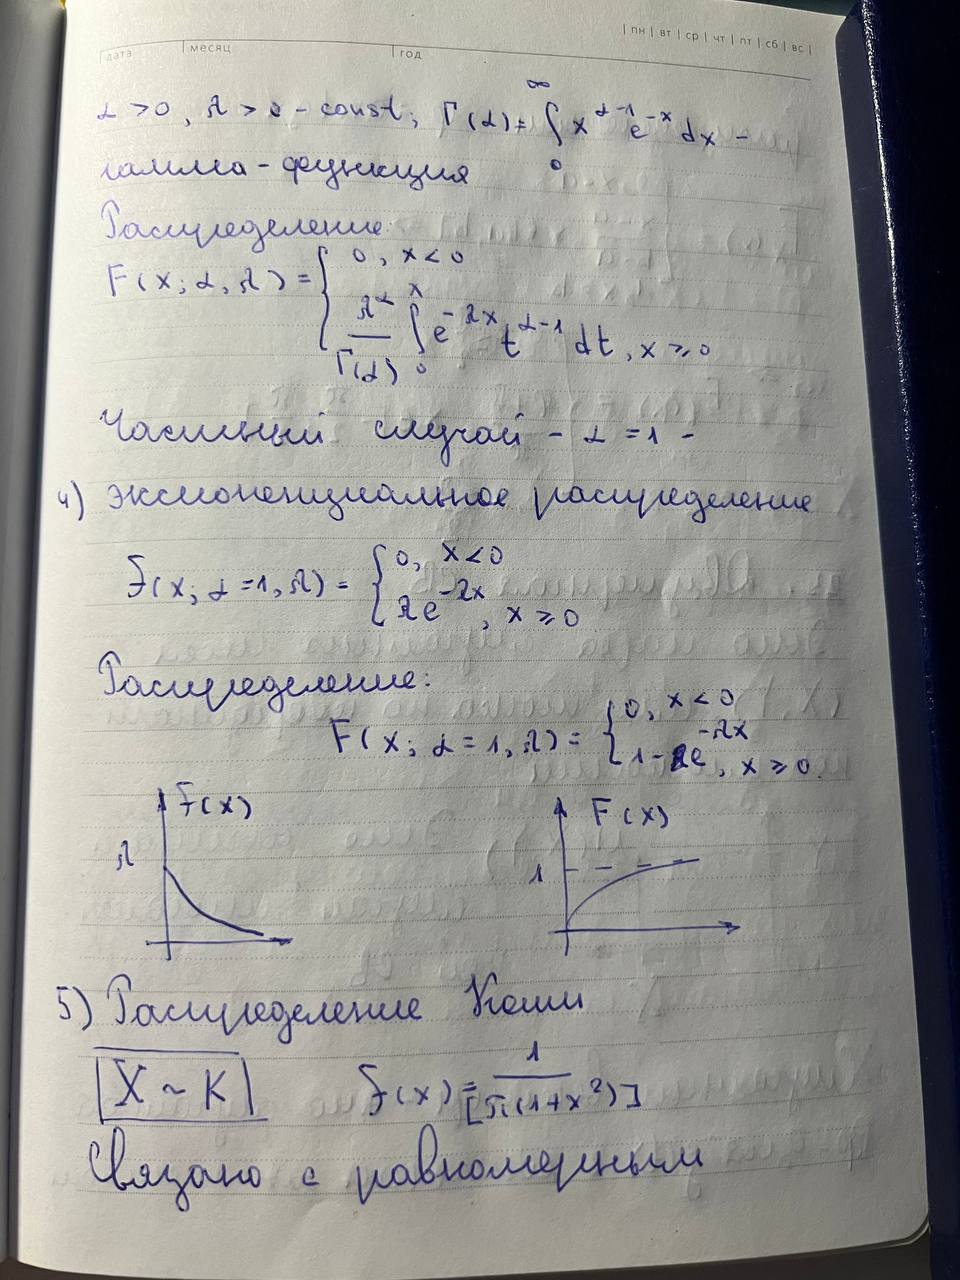 | пн | вт | ср | чт | пт | сб | вс |
дата | месяц | год
α > 0, λ > 0 - const; Γ(α) = ∫₀^∞ x^(α-1) e^(-x) dx -
гамма - функция
Распределение:
F(x; α, λ) = { 0, x < 0
λ^α / Γ(α) ∫₀^x e^(-λx) t^(α-1) dt, x ⩾ 0
Частный случай - α = 1 -
4) экспоненциальное распределение
f(x; α = 1, λ) = { 0, x < 0
λe^(-λx), x ⩾ 0
Распределение:
F(x; α = 1, λ) = { 0, x < 0
1 - e^(-λx), x ⩾ 0.
f(x) F(x)
λ 1
5) Распределение Коши
X ~ K f(x) = 1 / [π(1+x²)]
Связано с равномерным